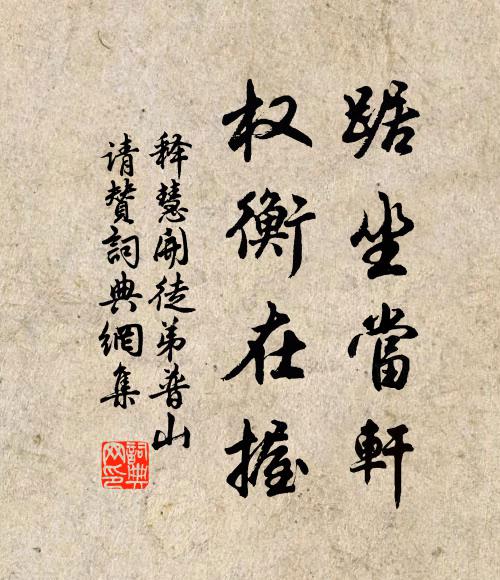 踞坐當軒
权衡在握
释慧開徒弟普山
请贊詞典網集
詞典
网印